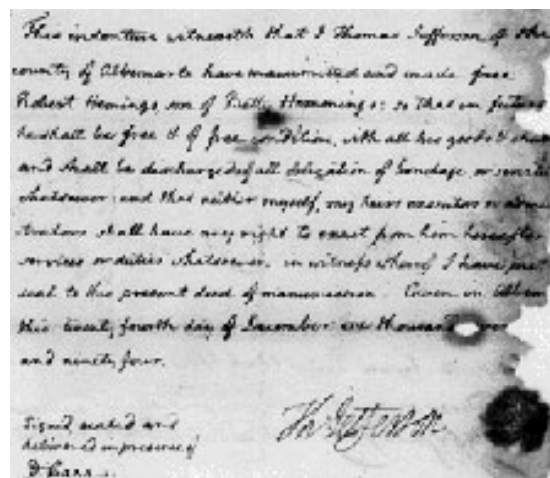 This indenture witnesseth that I Thomas Jefferson of the
county of Albemarle have manumitted and made free
Robert Hemings, son of Betty Hemmings: so that in future
he shall be free & of free condition, with all his goods &
and shall be discharged of all obligation of bondage or
whatsoever: and that neither myself, my heirs executors or
shall have any right to exact from him hereafter
services or duties whatsoever. in witness whereof I have put
seal to this present deed of manumission. Given in
this twenty fourth day of December one thousand
and ninety four.
Signed, sealed and
delivered in presence of
Th: Jefferson
D Carr